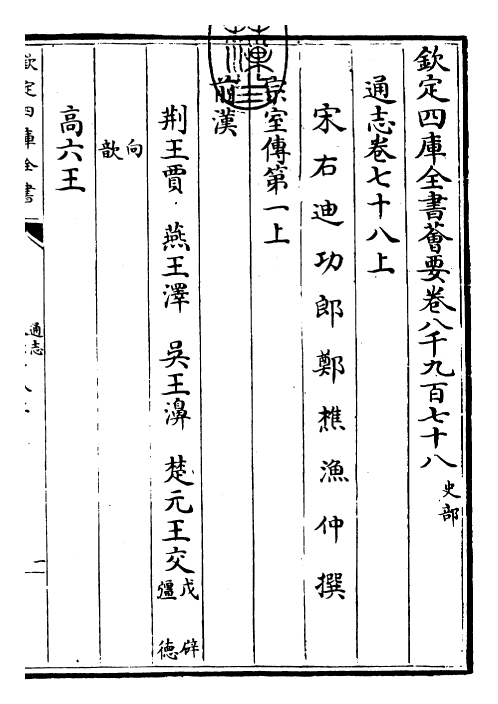 欽定四庫全書薈要卷八千九百七十八 史部
通志卷七十八上
宋右迪功郎鄭樵漁仲撰
宗室傳第一上
前漢
荆王賈 燕王澤 吳王濞 楚元王交 戊 辟
彊 德
向
歆
高六王
欽定四庫全書
通志